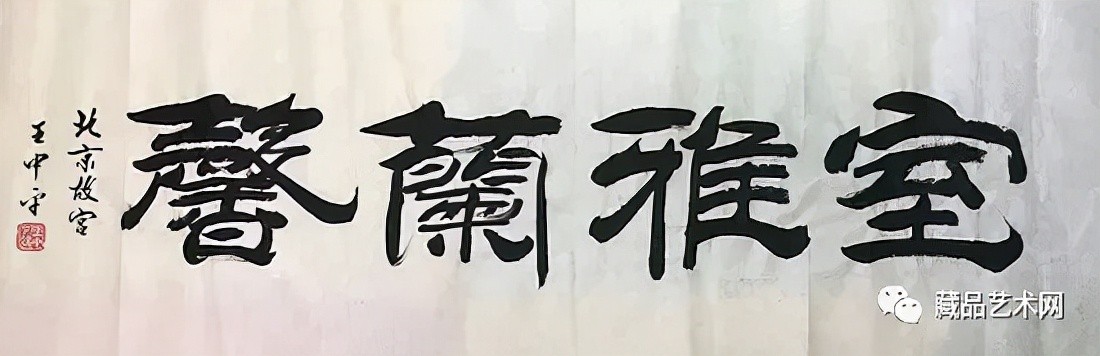 室雅蘭馨
北京故宫
王中平
藏品艺术网